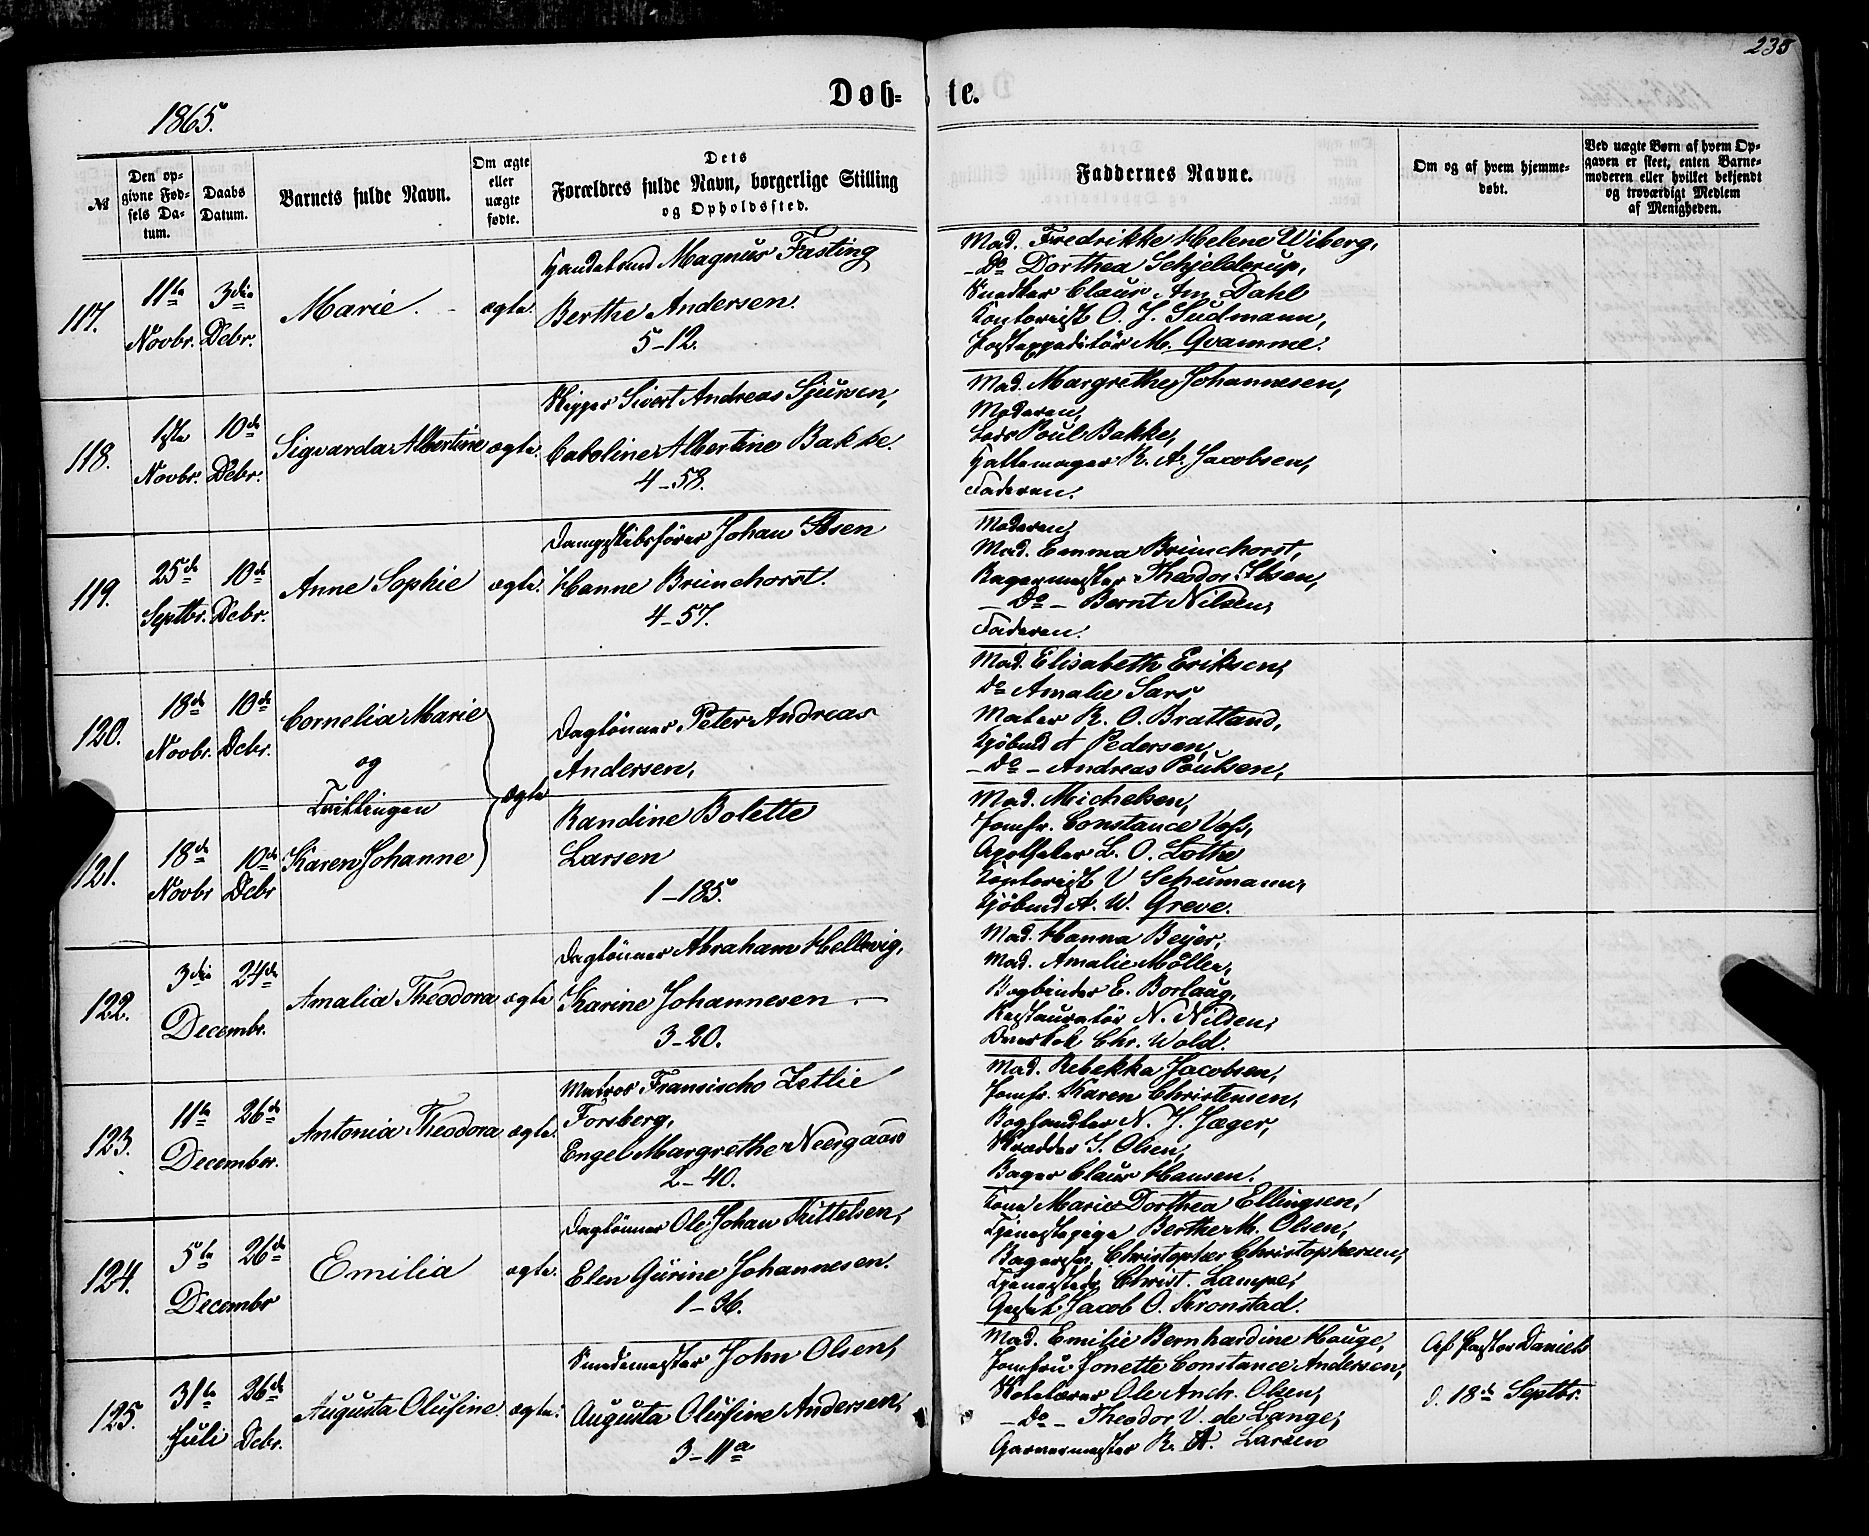 238
Døb- te.
1865.
№
Den opgivne Fødsels Datum.
Daabs Datum.
Barnets fulde Navn.
Om ægte eller uægte fødte.
Dets Forældres fulde Navn, borgerlige Stilling og Opholdssted.
Faddernes Navne.
Om og af hvem hjemmedøbt.
Ved uægte Børn af hvem Opgaven er skeet, enten Barnemoderen eller hvilket bekjendt og troværdigt Medlem af Menigheden.
117.
11te Novbr.
3die Debr.
Marie.
ægte.
Handelsmd Magnus Fasting
Berthe Andersen.
5-12.
Mad. Fredrikke Helene Wiberg,
-Do Dorthea Schjelderup,
Snedker Claus Am Dahl
Kontorist O. J. Sudmann,
Postexpeditør M. Qvamme.
118.
1ste Novbr.
10de Debr.
Sigvarda Albertine
ægte.
Skipper Sivert Andreas Sjursen,
Caroline Albertine Bakke.
4-58.
Mad. Margrethe Johannesen,
Moderen,
Lods Poul Bakke,
Hattemager R. A. Jacobsen,
Faderen.
119.
25de Septbr.
10de Debr.
Anne Sophie
ægte.
Dampskibsfører Johan Ibsen
Hanne Brunchorst.
4-57.
Moderen,
Mad. Emma Brunchorst,
Bagermester Theodor Ibsen,
-Do- Bernt Nilsen,
Faderen.
120.
18de Novbr.
10de Debr.
Cornelia Marie
og
Tvillingen
ægte
Daglønner Peter Andreas
Andersen,
Mad. Elisabeth Eriksen,
Do Amalie Sars
Maler R. O. Bratland,
Kjøbmd A Pedersen,
-Do- Andreas Poulsen,
121.
18de Novbr
10de Debr
Karen Johanne
Randine Bolette
Larsen
1-185.
Mad. Michelsen,
Jomfr. Constance Voss,
Apotheker L. O. Lothe
Kontorist V Schumann,
Kjøbmd A. W. Greve.
122.
3die
24de
Decembr.
Amalia Theodora
ægte
Daglønner Abraham Hellevig,
Karine Johannesen.
3-20.
Mad. Hanna Beyer,
Mad. Amalie Møller,
Bogbinder E. Borlaug,
Restauratør N. Nilsen,
Chr. Wold.
123.
11te
26de
December.
Antonia Theodora
ægte.
Matros Fransischo Zetlie
Forsberg,
Engel Margrethe Neergaard
2-40.
Mad. Rebekka Jacobsen,
Jomfr. Karen Christensen,
Boghandler N. J. Jæger,
Skrædder J. Olsen,
Bager Claus Hansen.
124.
5te
26de
Decembr
Emilia
ægte.
Daglønner Ole Johan Kittelsen,
Elen Gurine Johannesen.
1-36.
Kone Marie Dorthea Ellingsen,
Tjenestepige Berthe M. Olsen,
Bagersv. Christopher Christophersen,
Tjenestedr. Christ. Lampe,
Jacob O. Kronstad.
125.
31te Juli
26de Debr.
Augusta Olufine.
ægte.
Smedemester John Olsen,
Augusta Olufine Andersen,
3-11a
Mad. Emilie Bernhardine Hauge,
Jomfru Jonette Constance Andersen,
Skolelærer Ole Andr. Olsen,
-Do- Theodor V. de Lange,
Garvermester R. A. Larsen
Af Pastor Daniels
d. 18de Septbr.